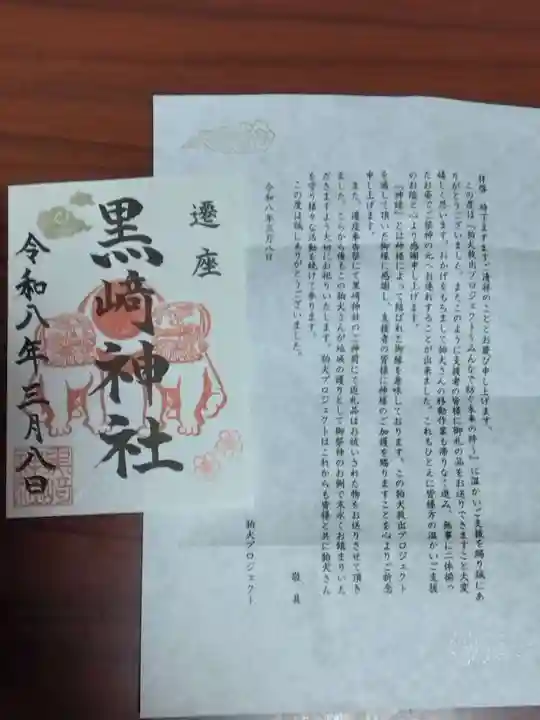 遷座
黒﨑神社
令和八年三月八日
拝啓 時下ますますご清祥のこととお慶び申し上げます。
この度は『狛犬救出プロジェクト～みんなで紡ぐ未来の絆～』に温かいご支援を賜り誠にあ
りがとうございました。またこのように支援者の皆様に御礼の品をお送りできますこと大変
嬉しく思います。おかげをもちまして狛犬さんの移動作業も滞りなく進み、無事に二体揃っ
たお姿でご祭神の元へお連れすることが出来ました。これもひとえに皆様方の温かいご支援
のお陰と心より感謝申し上げます。
『神縁』とは神様によって結ばれた御縁を意味しております。この狛犬救出プロジェクト
を通して頂いた御縁に感謝し、支援者の皆様に神様のご加護を賜りますことを心よりご祈念
申し上げます。
また、遷座奉告祭にて黒﨑神社のご神前にて返礼品はお祓いされた物をお送りさせて頂き
ました。これから後もこの狛犬さんが地域の護りとして御祭神のお側で末永くお鎮まりいた
だきますよう大切にお祀りいたします。狛犬プロジェクトはこれからも皆様と共に狛犬さん
を守り様々な活動を続けて参ります。
この度は誠にありがとうございました。
敬具
令和八年三月八日
狛犬プロジェクト